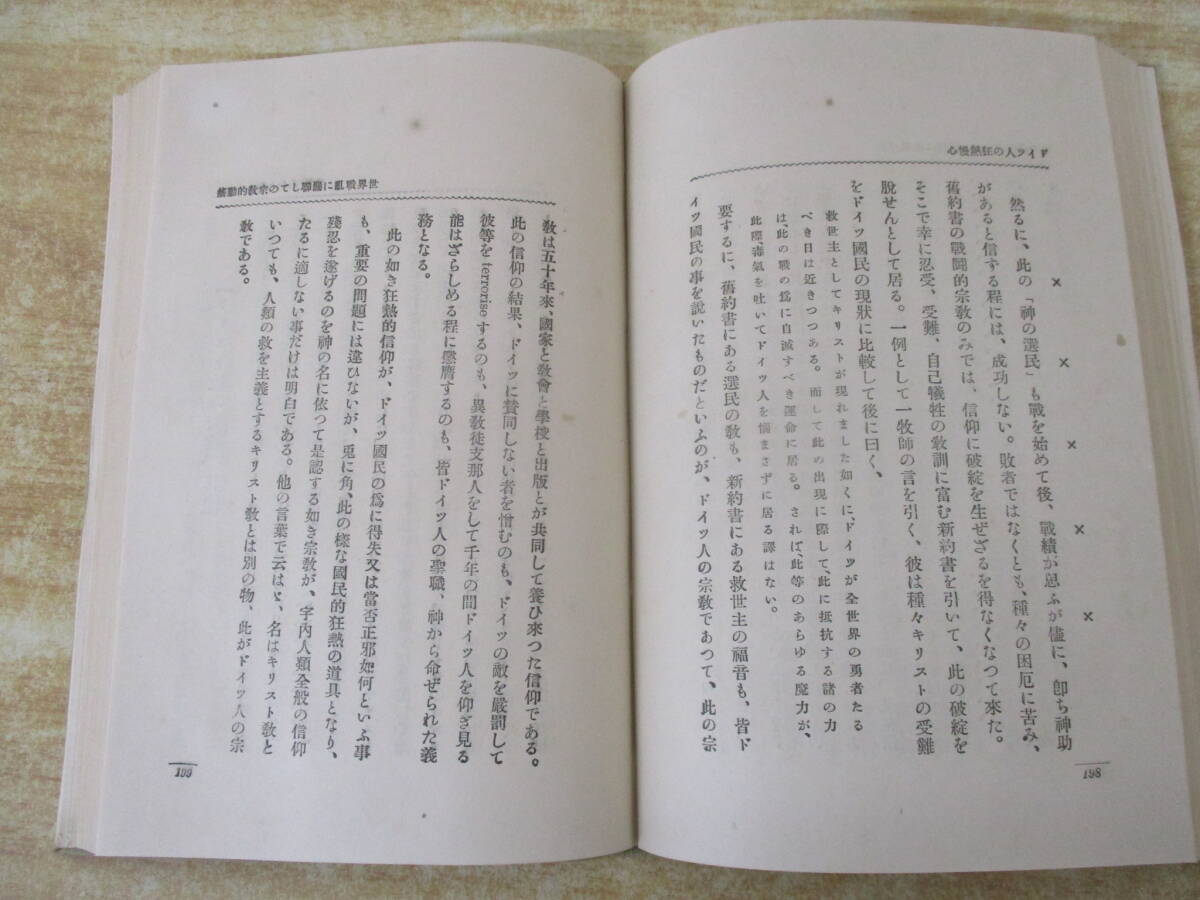 ドイツ人の狂熱慢心
× × × × ×
然るに、此の「神の選民」も戰を始めて後、戰績が思ふが儘に、卽ち神助
があると信ずる程には、成功しない。敗者ではなくとも、種々の困厄に苦み、
舊約書の戰鬪的宗敎のみでは、信仰に破綻を生ぜざるを得なくなつて來た。
そこで幸に忍受、受難、自己犧牲の敎訓に富む新約書を引いて、此の破綻を
脫せんとして居る。一例として一牧師の言を引く、彼は種々キリストの受難
をドイツ國民の現狀に比較して後に曰く、
救世主としてキリストが現れました如くに、ドイツが全世界の勇者たる
べき日は近きつつある。而して此の出現に際して、此に抵抗する諸の力
は、此の戰の爲に自滅すべき運命に居る。されば、此等のあらゆる魔力が、
此際、毒氣を吐いてドイツ人を惱まさずに居る譯はない。
要するに、舊約書にある選民の敎も、新約書にある救世主の福音も、皆ド
イツ國民の事を說いたものだといふのが、ドイツ人の宗敎であつて、此の宗
198
世界戰亂に關聯しての宗敎的動搖
敎は五十年來、國家と敎會と學校と出版とが共同して養ひ來つた信仰である。
此の信仰の結果、ドイツに贊同しない者を憎むのも、ドイツの敵を嚴罰して
彼等を terrorise するのも、異敎徒支那人をして千年の間ドイツ人を仰ぎ見る
能はざらしめる程に懲膺するのも、皆ドイツ人の聖職、神から命ぜられた義
務となる。
此の如き狂熱的信仰が、ドイツ國民の爲に得失又は當否正邪如何といふ事
も、重要の問題には違ひないが、兎に角、此の樣な國民的狂熱の道具となり、
殘忍を遂げるのを神の名に依つて是認する如き宗敎が、宇內人類全般の信仰
たるに適しない事だけは明白である。他の言葉で云はゞ、名はキリスト敎と
いつても、人類の救を主義とするキリスト敎とは別の物、此がドイツ人の宗
敎である。
199